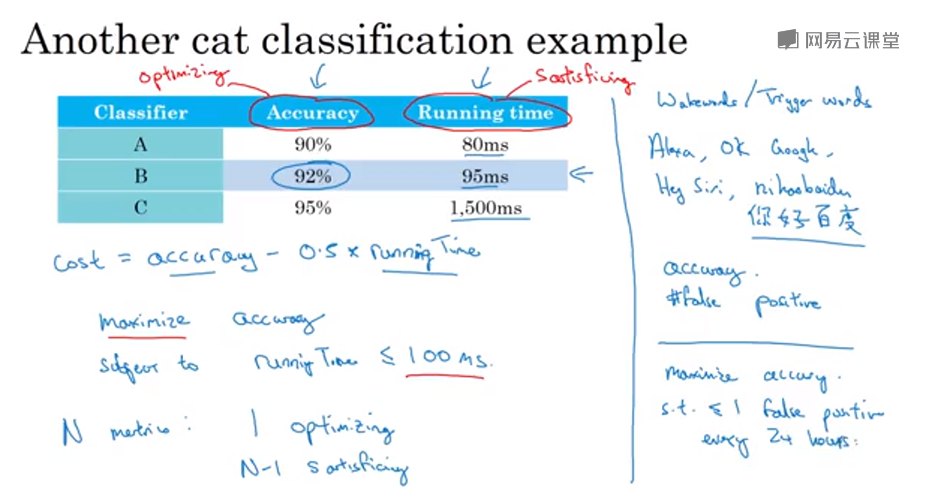 Another cat classification example
网易云课堂
optimizing
satisficing
Classifier Accuracy Running time
A 90% 80ms
B 92% 95ms
C 95% 1,500ms
cost = accuracy - 0.5 x runningTime
maximize accuracy
subject to runningTime ≤ 100 ms.
N metrics: 1 optimizing
N-1 satisficing
Wakewords / Trigger words
Alexa, OK Google,
Hey Siri, nihaobaidu
你好百度
accuracy.
#false positive
maximize accuracy.
s.t. ≤ 1 false positive
every 24 hours.